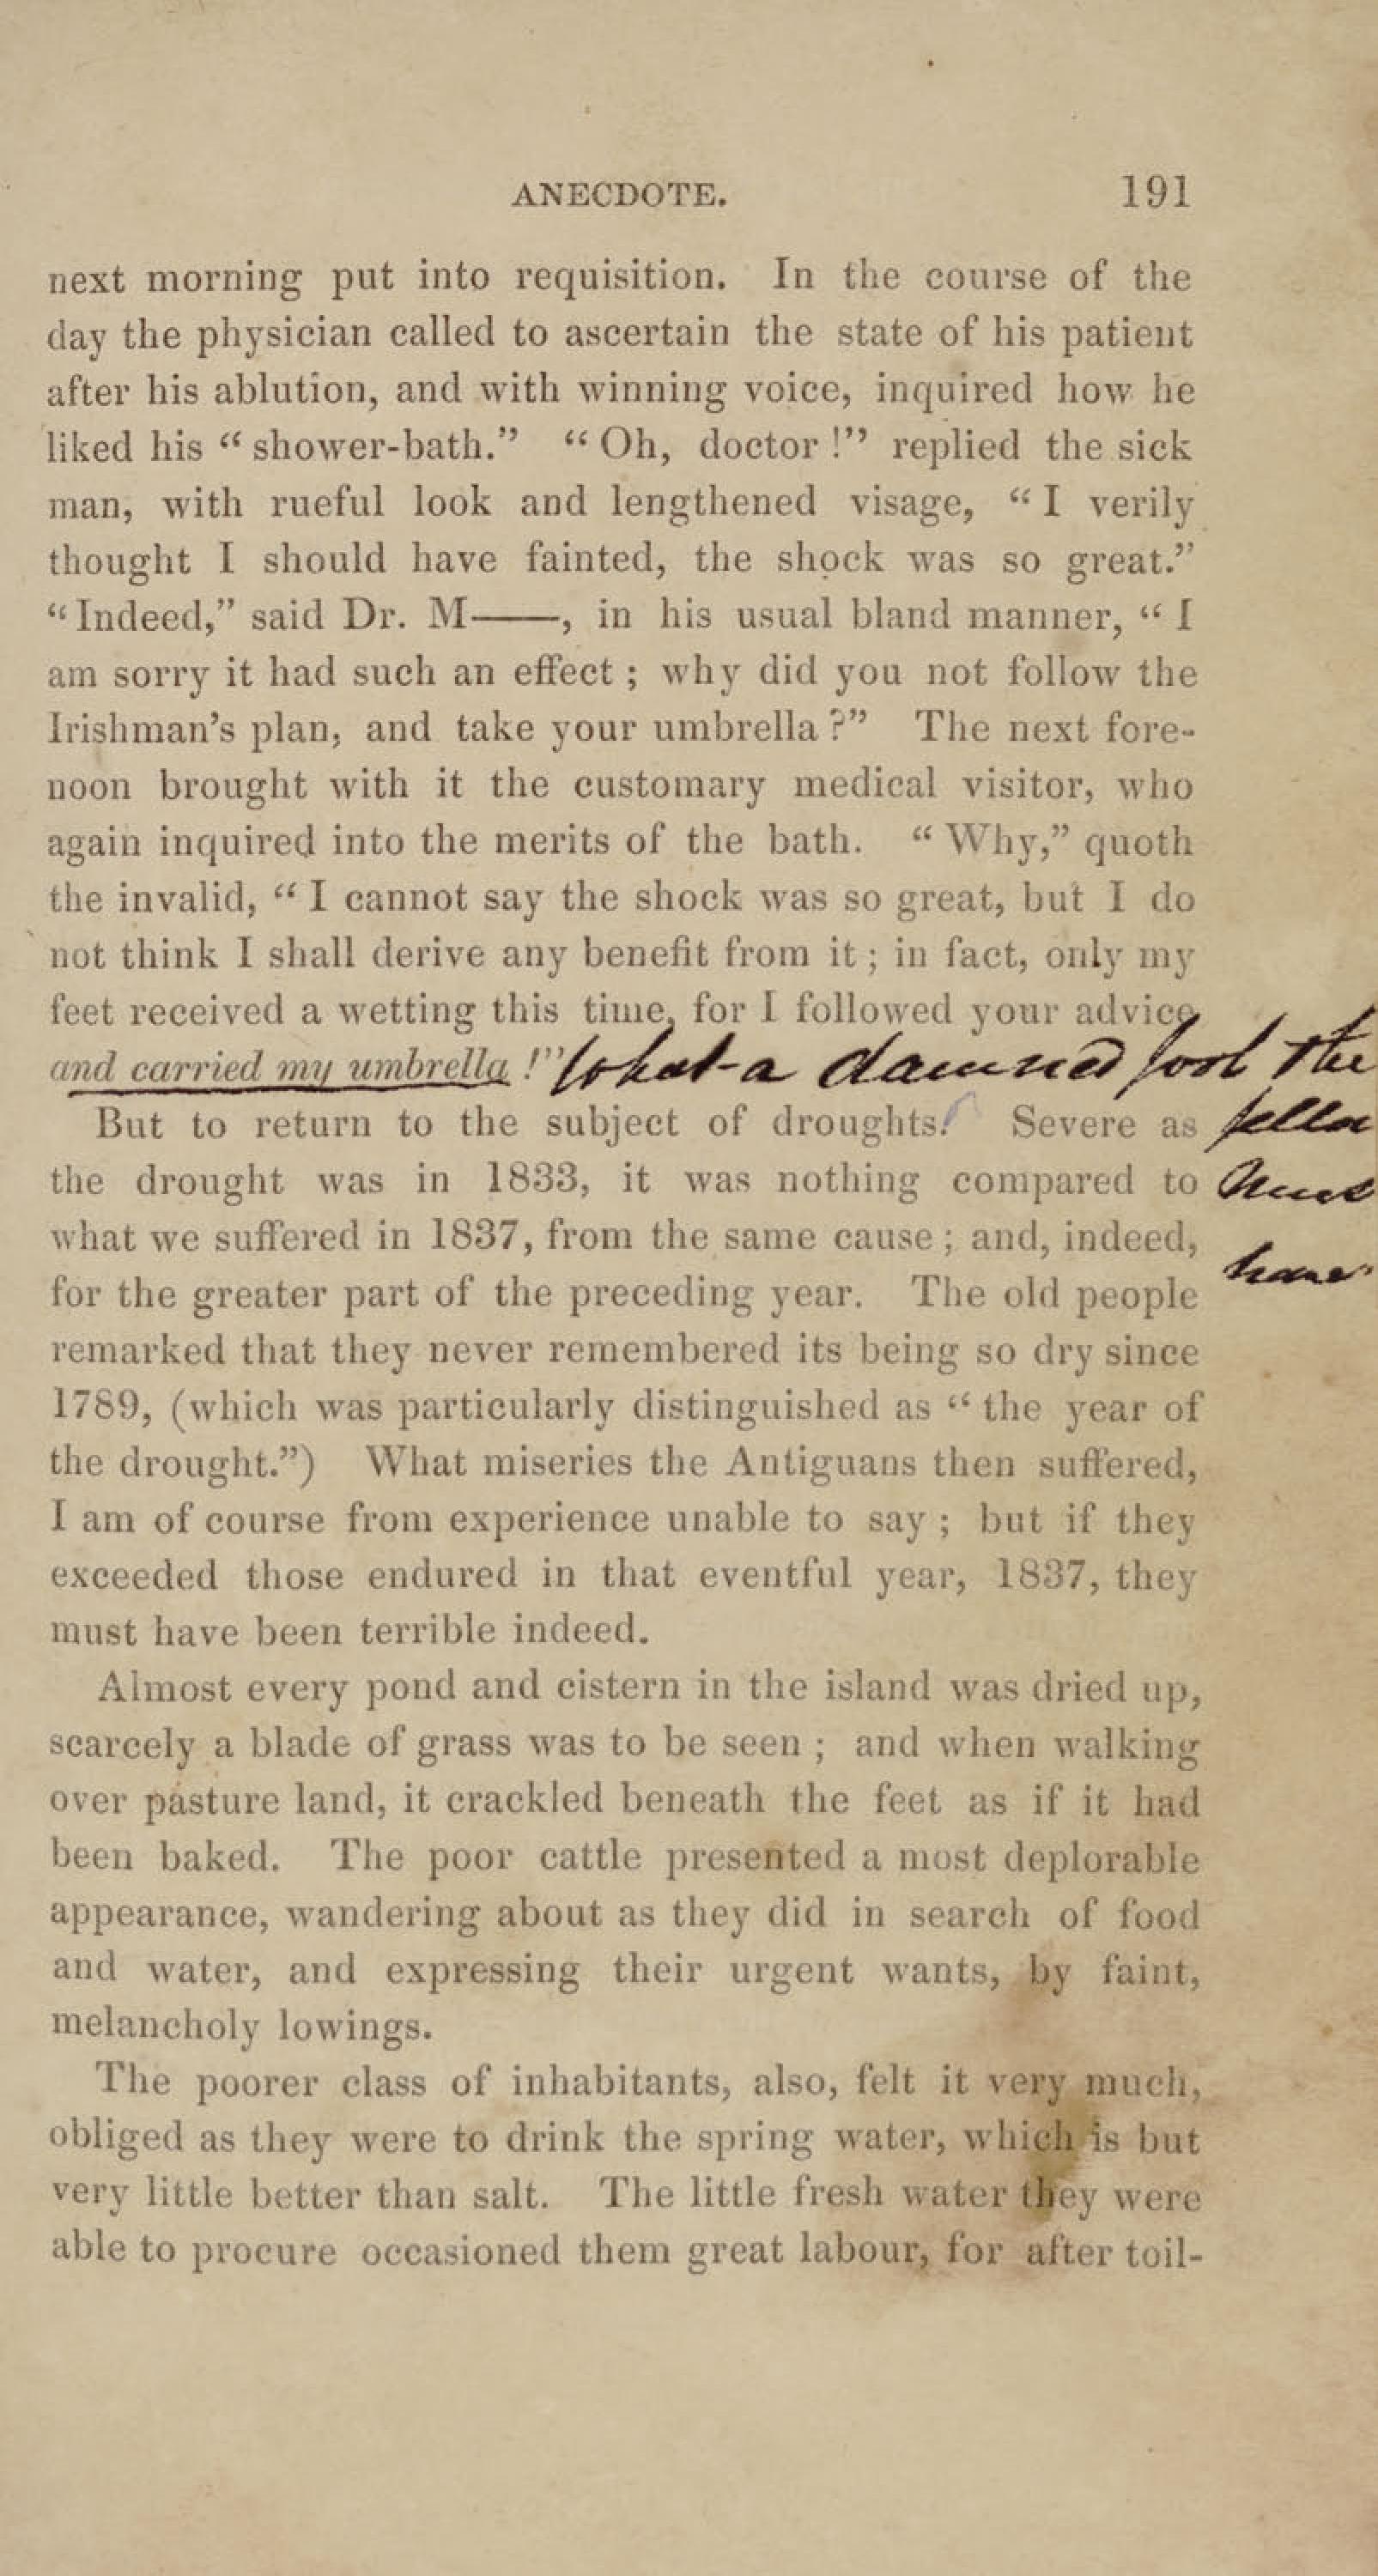 ANECDOTE. 191
next morning put into requisition. In the course of the
day the physician called to ascertain the state of his patient
after his ablution, and with winning voice, inquired how he
liked his “ shower-bath.” “ Oh, doctor !” replied the sick
man, with rueful look and lengthened visage, “ I verily
thought I should have fainted, the shock was so great.”
“ Indeed,” said Dr. M——, in his usual bland manner, “ I
am sorry it had such an effect ; why did you not follow the
Irishman’s plan, and take your umbrella ?” The next fore-
noon brought with it the customary medical visitor, who
again inquired into the merits of the bath. “ Why,” quoth
the invalid, “ I cannot say the shock was so great, but I do
not think I shall derive any benefit from it ; in fact, only my
feet received a wetting this time, for I followed your advice
and carried my umbrella !” What a damned fool the
But to return to the subject of droughts. Severe as fella
the drought was in 1833, it was nothing compared to must
what we suffered in 1837, from the same cause ; and, indeed,
have
for the greater part of the preceding year. The old people
remarked that they never remembered its being so dry since
1789, (which was particularly distinguished as “ the year of
the drought.”) What miseries the Antiguans then suffered,
I am of course from experience unable to say ; but if they
exceeded those endured in that eventful year, 1837, they
must have been terrible indeed.
Almost every pond and cistern in the island was dried up,
scarcely a blade of grass was to be seen ; and when walking
over pasture land, it crackled beneath the feet as if it had
been baked. The poor cattle presented a most deplorable
appearance, wandering about as they did in search of food
and water, and expressing their urgent wants, by faint,
melancholy lowings.
The poorer class of inhabitants, also, felt it very much,
obliged as they were to drink the spring water, which is but
very little better than salt. The little fresh water they were
able to procure occasioned them great labour, for after toil-